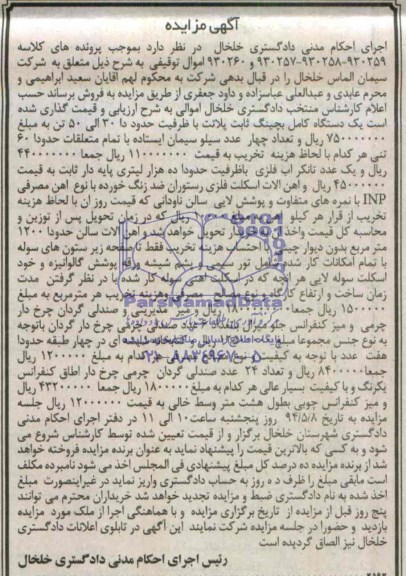 آگهی مزایده
اجرای احکام مدنی دادگستری خلخال در نظر دارد بموجب پرونده های کلاسه
۹۳۰۲۵۹-۹۳۰۲۵۸-۹۳۰۲۵۷ و ۹۳۰۲۶۰ اموال توقیفی به شرح ذیل متعلق به شرکت
سیمان الماس خلخال را در قبال بدهی شرکت به محکوم لهم آقایان سعید ابراهیمی و
محرم عابدی و عبدالعلی عباسزاده و داود جعفری از طریق مزایده به فروش برساند حسب
اعلام کارشناس منتخب دادگستری خلخال اموالی به شرح ارزیابی و قیمت گذاری شده
است یک دستگاه کامل بچینگ ثابت پلانت با ظرفیت حدود دا ۳۰ الی ۵۰ تن به مبلغ
ریال و تعداد چهار عدد سیلو سیمان ایستاده با تمام متعلقات حدودا ۶۰
تنی هر کدام با لحاظ هزینه تخریب به قیمت ریال جمعا
ریال و یک عدد تانکر آب فلزی باظرفیت حدودا ده هزار لیتری پایه دار ثابت به قیمت
ریال و آهن الات اسکلت فلزی رستوران ضد زنگ خورده با نوع آهن مصرفی
INP با نمره های متفاوت و پوشش لایی سالن ناودانی که قیمت روز آن با لحاظ هزینه
تخریب از قرار هر کیلو ریال که در زمان تحویل پس از توزین و
محاسبه کل قیمت واخذ تحویل خواهد شد و آهن الات سالن حدودا ۱۲۰۰
متر مربع بدون دیوار چینی با احتساب هزینه تخریب فقط تا صفحه زیر ستون های سوله
با تمام امکانات کار شده شامل تور سیمی و پشم شیشه ورق پوشش گالوانیزه و خود
اسکلت سوله لایی هر آنچه که در اسکلت اصلی سوله کار شده با در نظر گرفتن مدت
زمان ساخت و ارتفاع کارگاه و هزینه تخریب هر مترمربع به مبلغ
ریال جمعا ریال و میز مدیریتی و صندلی گردان چرخ دار
چرمی و میز کنفرانس چرمی چرخ دار گردان باتوجه
به نوع جنس مجموعا مبلغ ای در چهار طبقه حدودا
هفت عدد با توجه به کیفیت هر کدام به مبلغ ۱۲۰۰۰۰۰ ریال
جمعا ۸۴۰۰۰۰۰ ریال و تعداد ۲۴ عدد صندلی گردان چرمی چرخ دار اطاق کنفرانس
یکرنگ و با کیفیت بسیار عالی هر کدام به مبلغ ۱۸۰۰۰۰۰ ریال جمعا ۴۳۲۰۰۰۰۰ ریال
و میز کنفرانس چوبی بطول هشت متر وسط خالی به قیمت ۱۲۰۰۰۰۰۰ ریال جلسه
مزایده به تاریخ ۹۴/۵/۸ روز پنجشنبه ساعت ۱۰ الی ۱۱ در دفتر اجرای احکام مدنی
دادگستری شهرستان خلخال برگزار و از قیمت تعیین شده توسط کارشناس شروع می
شود و به کسی که بالاترین قیمت را پیشنهاد نماید به عنوان برنده مزایده فروخته خواهد
شد از برنده مزایده ده درصد کل مبلغ پیشنهادی فی المجلس اخذ می شود نامبرده مکلف
است مابقی مبلغ را ظرف ده روز به حساب دادگستری واریز نماید در غیراینصورت مبلغ
اخذ شده به نام دادگستری ضبط و مزایده تجدید خواهد شد خریداران محترم می توانند
پنج روز قبل از مزایده از تاریخ برگزاری مزایده و با هماهنگی اجرا از ملک مورد مزایده
بازدید و حضورا در جلسه مزایده شرکت نمایند این آگهی در تابلوی اعلانات دادگستری
خلخال نیز الصاق گردیده است
رئیس اجرای احکام مدنی دادگستری خلخال
ParsNamadData
۰۲۱-۸۸۳۴۹۶۷۰-۵